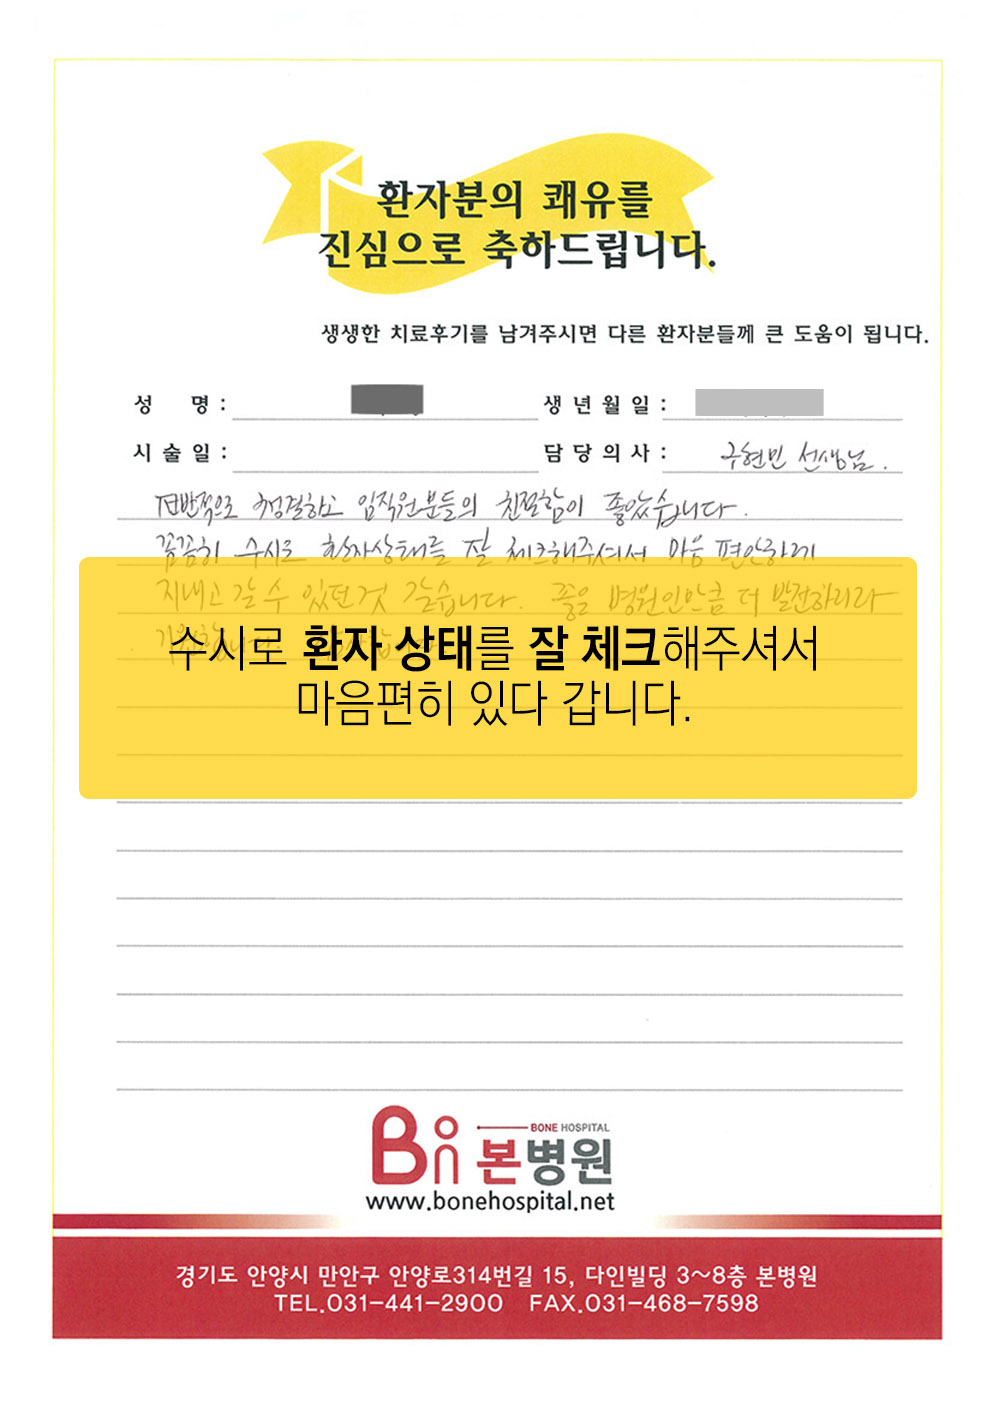 환자분의 쾌유를
진심으로 축하드립니다.
생생한 치료후기를 남겨주시면 다른 환자분들께 큰 도움이 됩니다.
성 명 : 생 년 월 일 :
시 술 일 : 담 당 의 사 : 구현민 선생님.
전반적으로 청결하고 임직원분들의 친절함이 좋았습니다.
꼼꼼히 수시로 환자상태를 잘 체크해주셔서 마음 편안하게
지내고 갈 수 있던것 같습니다. 좋은 병원인만큼 더 발전하리라
수시로 환자 상태를 잘 체크해주셔서
마음편히 있다 갑니다.
BONE HOSPITAL
Bon 본병원
www.bonehospital.net
경기도 안양시 만안구 안양로314번길 15, 다인빌딩 3~8층 본병원
TEL.031-441-2900 FAX.031-468-7598